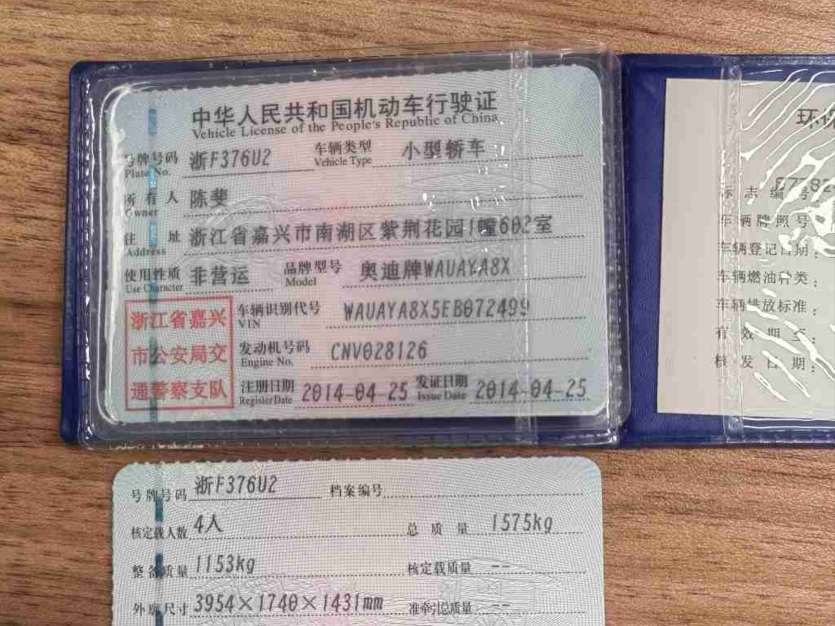 中华人民共和国机动车行驶证
Vehicle License of the People's Republic of China
号牌号码 浙F376U2 车辆类型 小型轿车
Plate No. Vehicle Type
所有人 陈斐
Owner
住址 浙江省嘉兴市南湖区紫荆花园1幢602室
Address
使用性质 非营运 品牌型号 奥迪牌WAUAYA8X
Use Character Model
浙江省嘉兴 车辆识别代号 WAUAYA8X5EB072499
VIN
市公安局交 发动机号码 CNV028126
Engine No.
通警察支队 注册日期 2014-04-25 发证日期 2014-04-25
Register Date Issue Date
号牌号码 浙F376U2 档案编号
核定载人数 4人 总质量 1575kg
整备质量 1153kg 核定载质量 --
外廓尺寸 3954×1740×1431mm 准牵引总质量 --
环保
标志编号
车辆牌照号
车辆登记日期:
车辆燃油种类:
车辆排放标准:
有效期至:
核发日期: